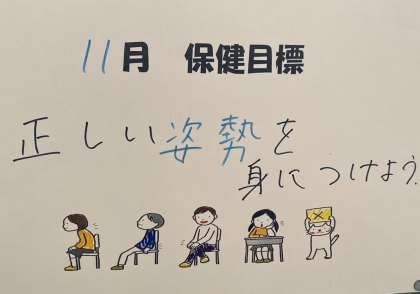 11月 保健目標
正しい姿勢を
身につけよう。
×